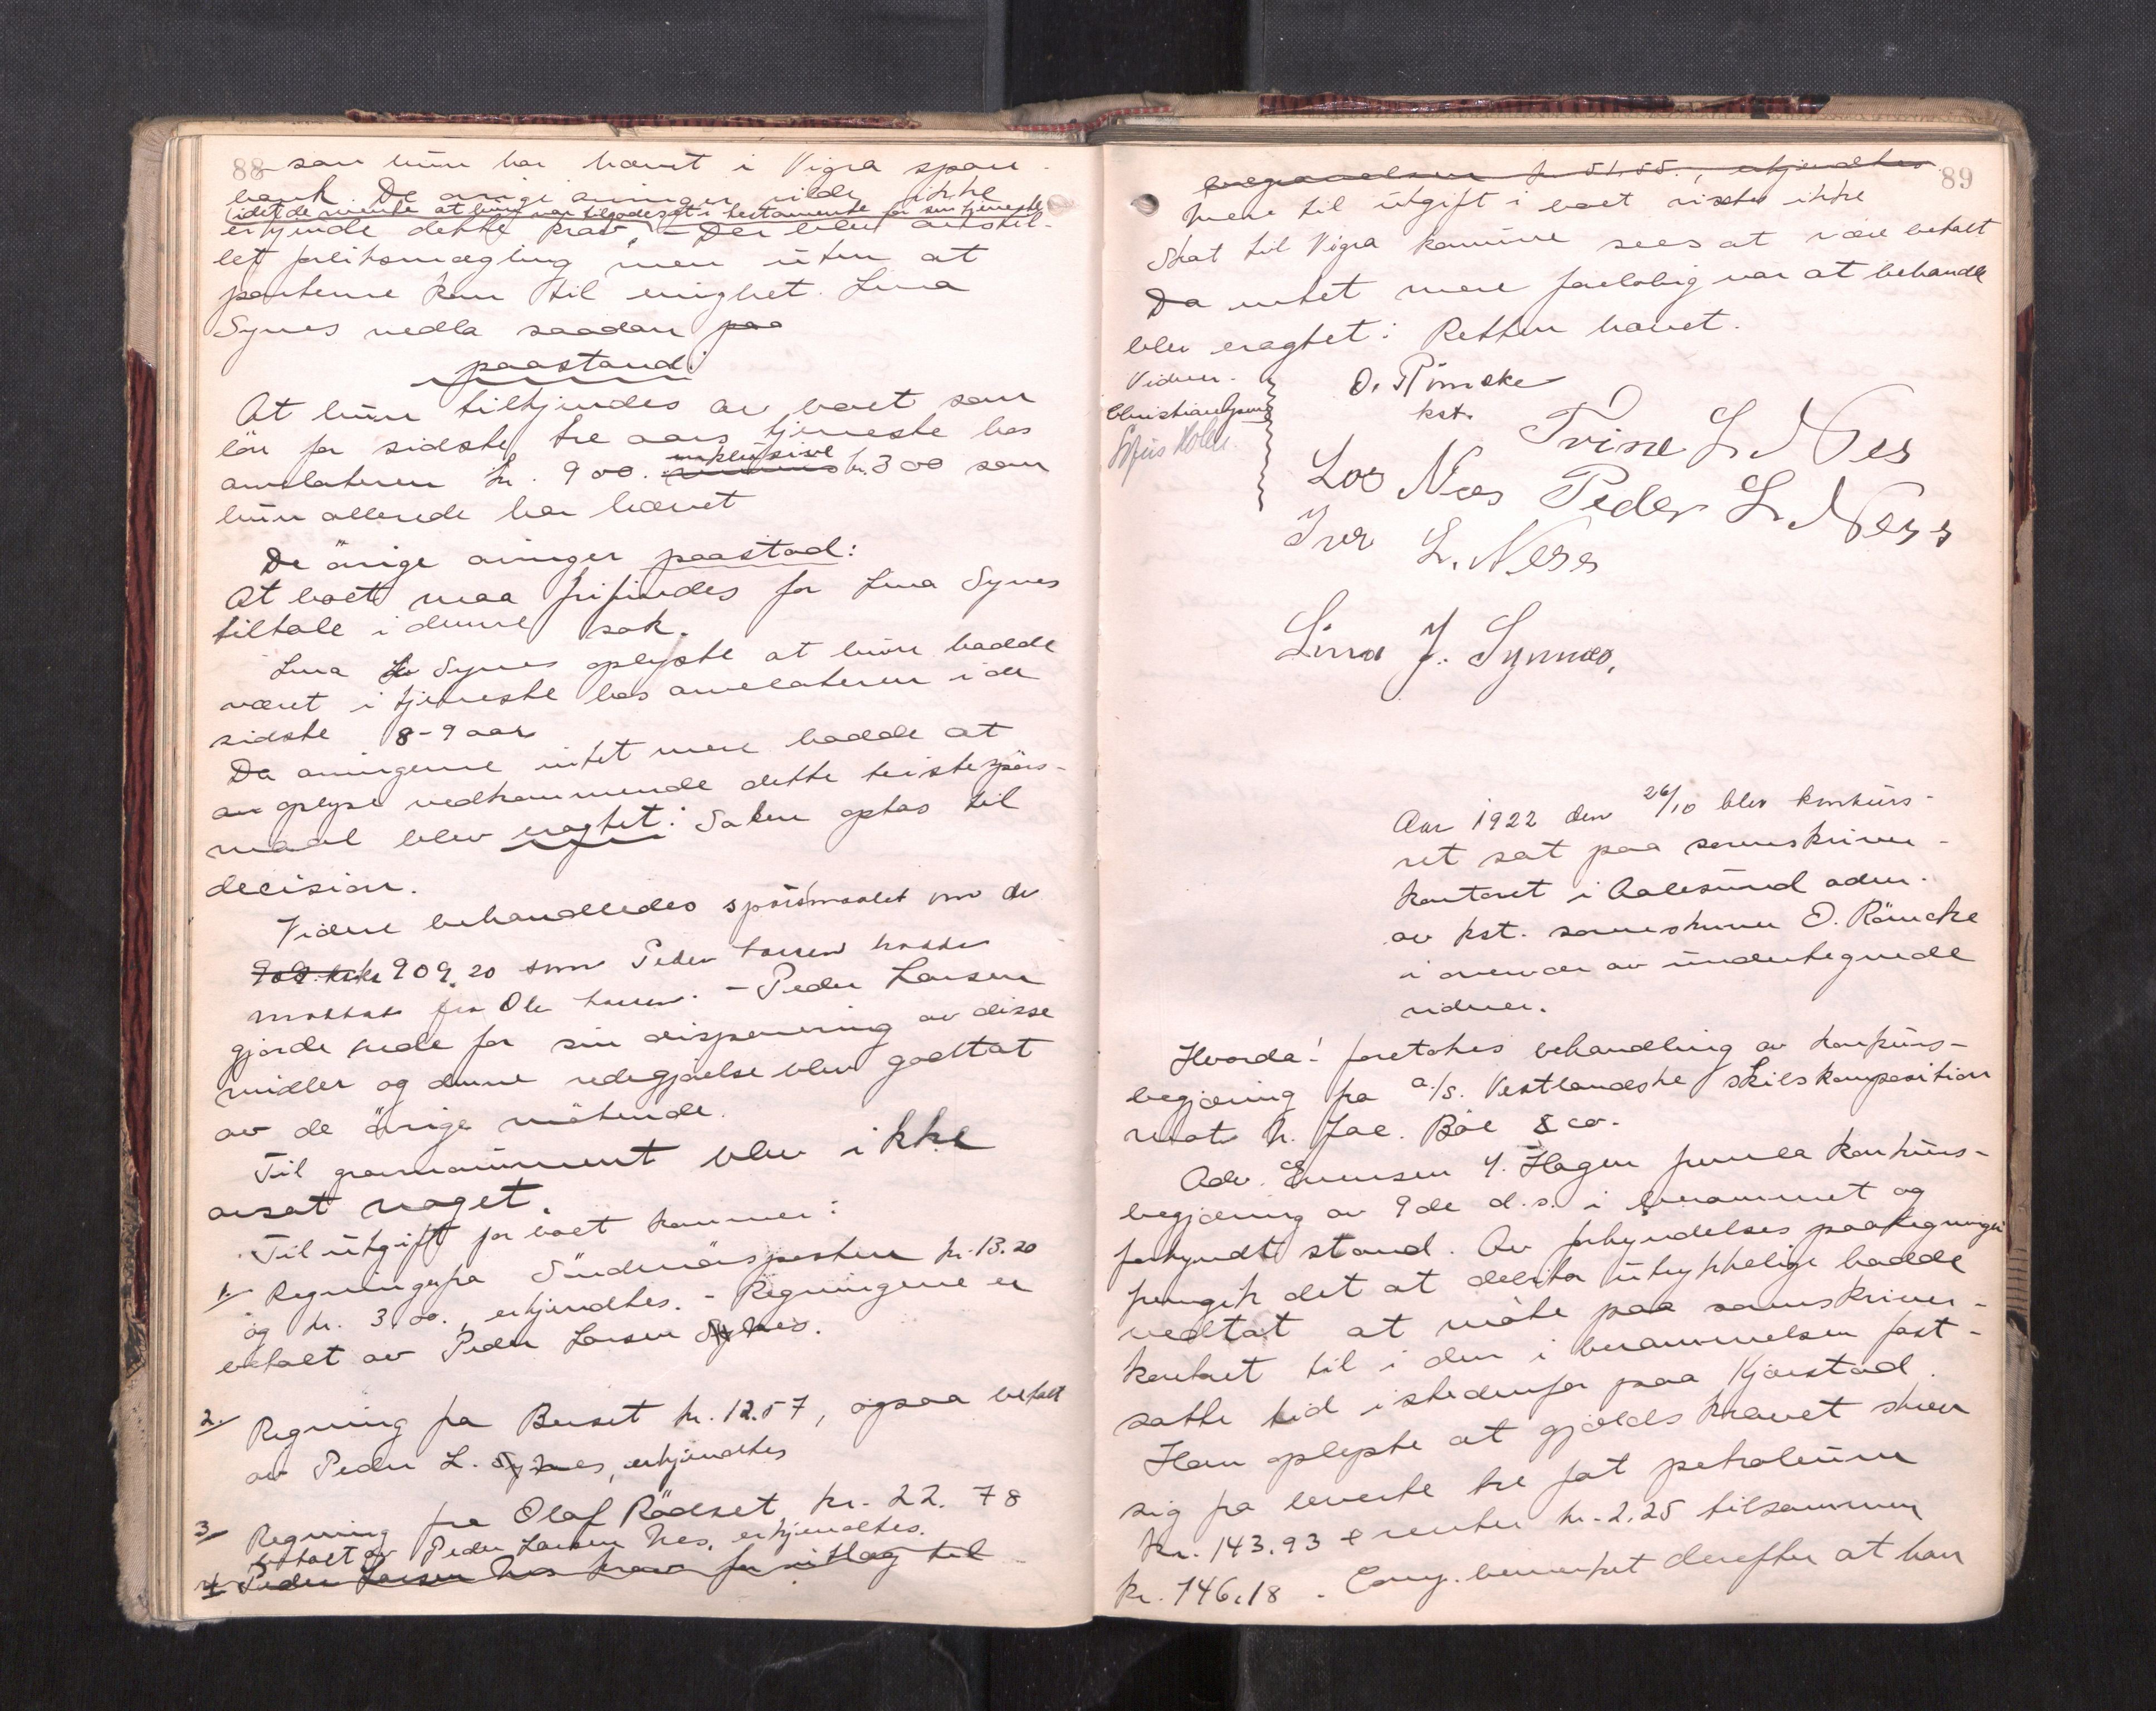 88
som hun har hævet i Vigra spare-
bank. De øvrige arvinger vilde ikke
(idet de mente at hun var tilgodeset i testamente for sin tjeneste
erkjende dette krav. - Der blev anstil-
let forliksmægling men uten at
parterne kom til enighet. Lina
Synes nedla saadan paa
paastand:
At hun tilkjendes av boet som
lön for sidste tre aars tjeneste hos
avdøde kr. 900. inklusive kr. 300 som
hun allerede har hævet
De övrige arvinger paastod:
At boet maa frifindes for Lina Synes
tiltale i denne sak.
Lina Synes oplyste at hun hadde
været i tjeneste hos i de
sidste 8-9 aar
Da arvingerne intet mere hadde at
oplyse vedkommende dette tvistespörs-
maal blev eragtet: Saken optas til
decision.
Videre behandledes spörsmaalet om de
909.20 som Peder Larsen hadde
mottat fra Ole Larsen. - Peder Larsen
gjorde rede for sin disponering av disse
midler og denne redegjörelse blev godtat
av de övrige mötende.
Til blev ikke
avsat noget.
Til utgift for boet kommer:
1. Regninger fra Söndmörsposten kr. 13.20
og kr. 3.00., erkjendtes. - Regningerne er
betalt av Peder Larsen Nes.
2. Regning fra Buset kr. 12.57, ogsaa betalt
av Peder L. Nes, erkjendtes
3. Regning fra Olaf Rödset kr. 22.78
betalt av Peder Larsen Nes, erkjendtes.
4 Peder Larsen Nes krav for utlæg til
89
begravelsen kr 51,55., erkjendtes
Mere til utgift i boet vistes ikke
Skat til Vigra kommune sees at være betalt
Da intet mere foreløbig var at behandle
blev eragtet: Retten hævet.
Vidner. O. Römcke
kst.
Trine L. Nes
Lars Nes Peder L. Ness
Iver L. Ness
Lina J. Synnes.
Aar 1922 den 26/10 blev konkurs-
ret sat paa sorenskriver-
kontoret i Aalesund adm.
av kst. sorenskriver O. Römcke
i overvær av undertegnede
vidner.
Hvorda! foretokes behandling av konkurs-
begjæring fra a/s. Vestlandske Skibskomposition
mot h. Jac. Böe & co.
Adv. Evensen f. Hagen fremla konkurs-
begjæring av 9de d.s. i berammet og
forkyndt stand. Av forkyndelses paategningen
fremgik det at debitor uttrykkelig hadde
vedtat at möte paa sorenskriver-
kontoret til i den i berammelsen fast-
satte tid istedenfor paa Kjørstad.
Han oplyste at gjældskravet skrev
sig fra leverte tre fat petroleum
kr. 143.93 + renter kr. 2.25 tilsammen
kr. 146.18. Comp. bemerket derefter at han